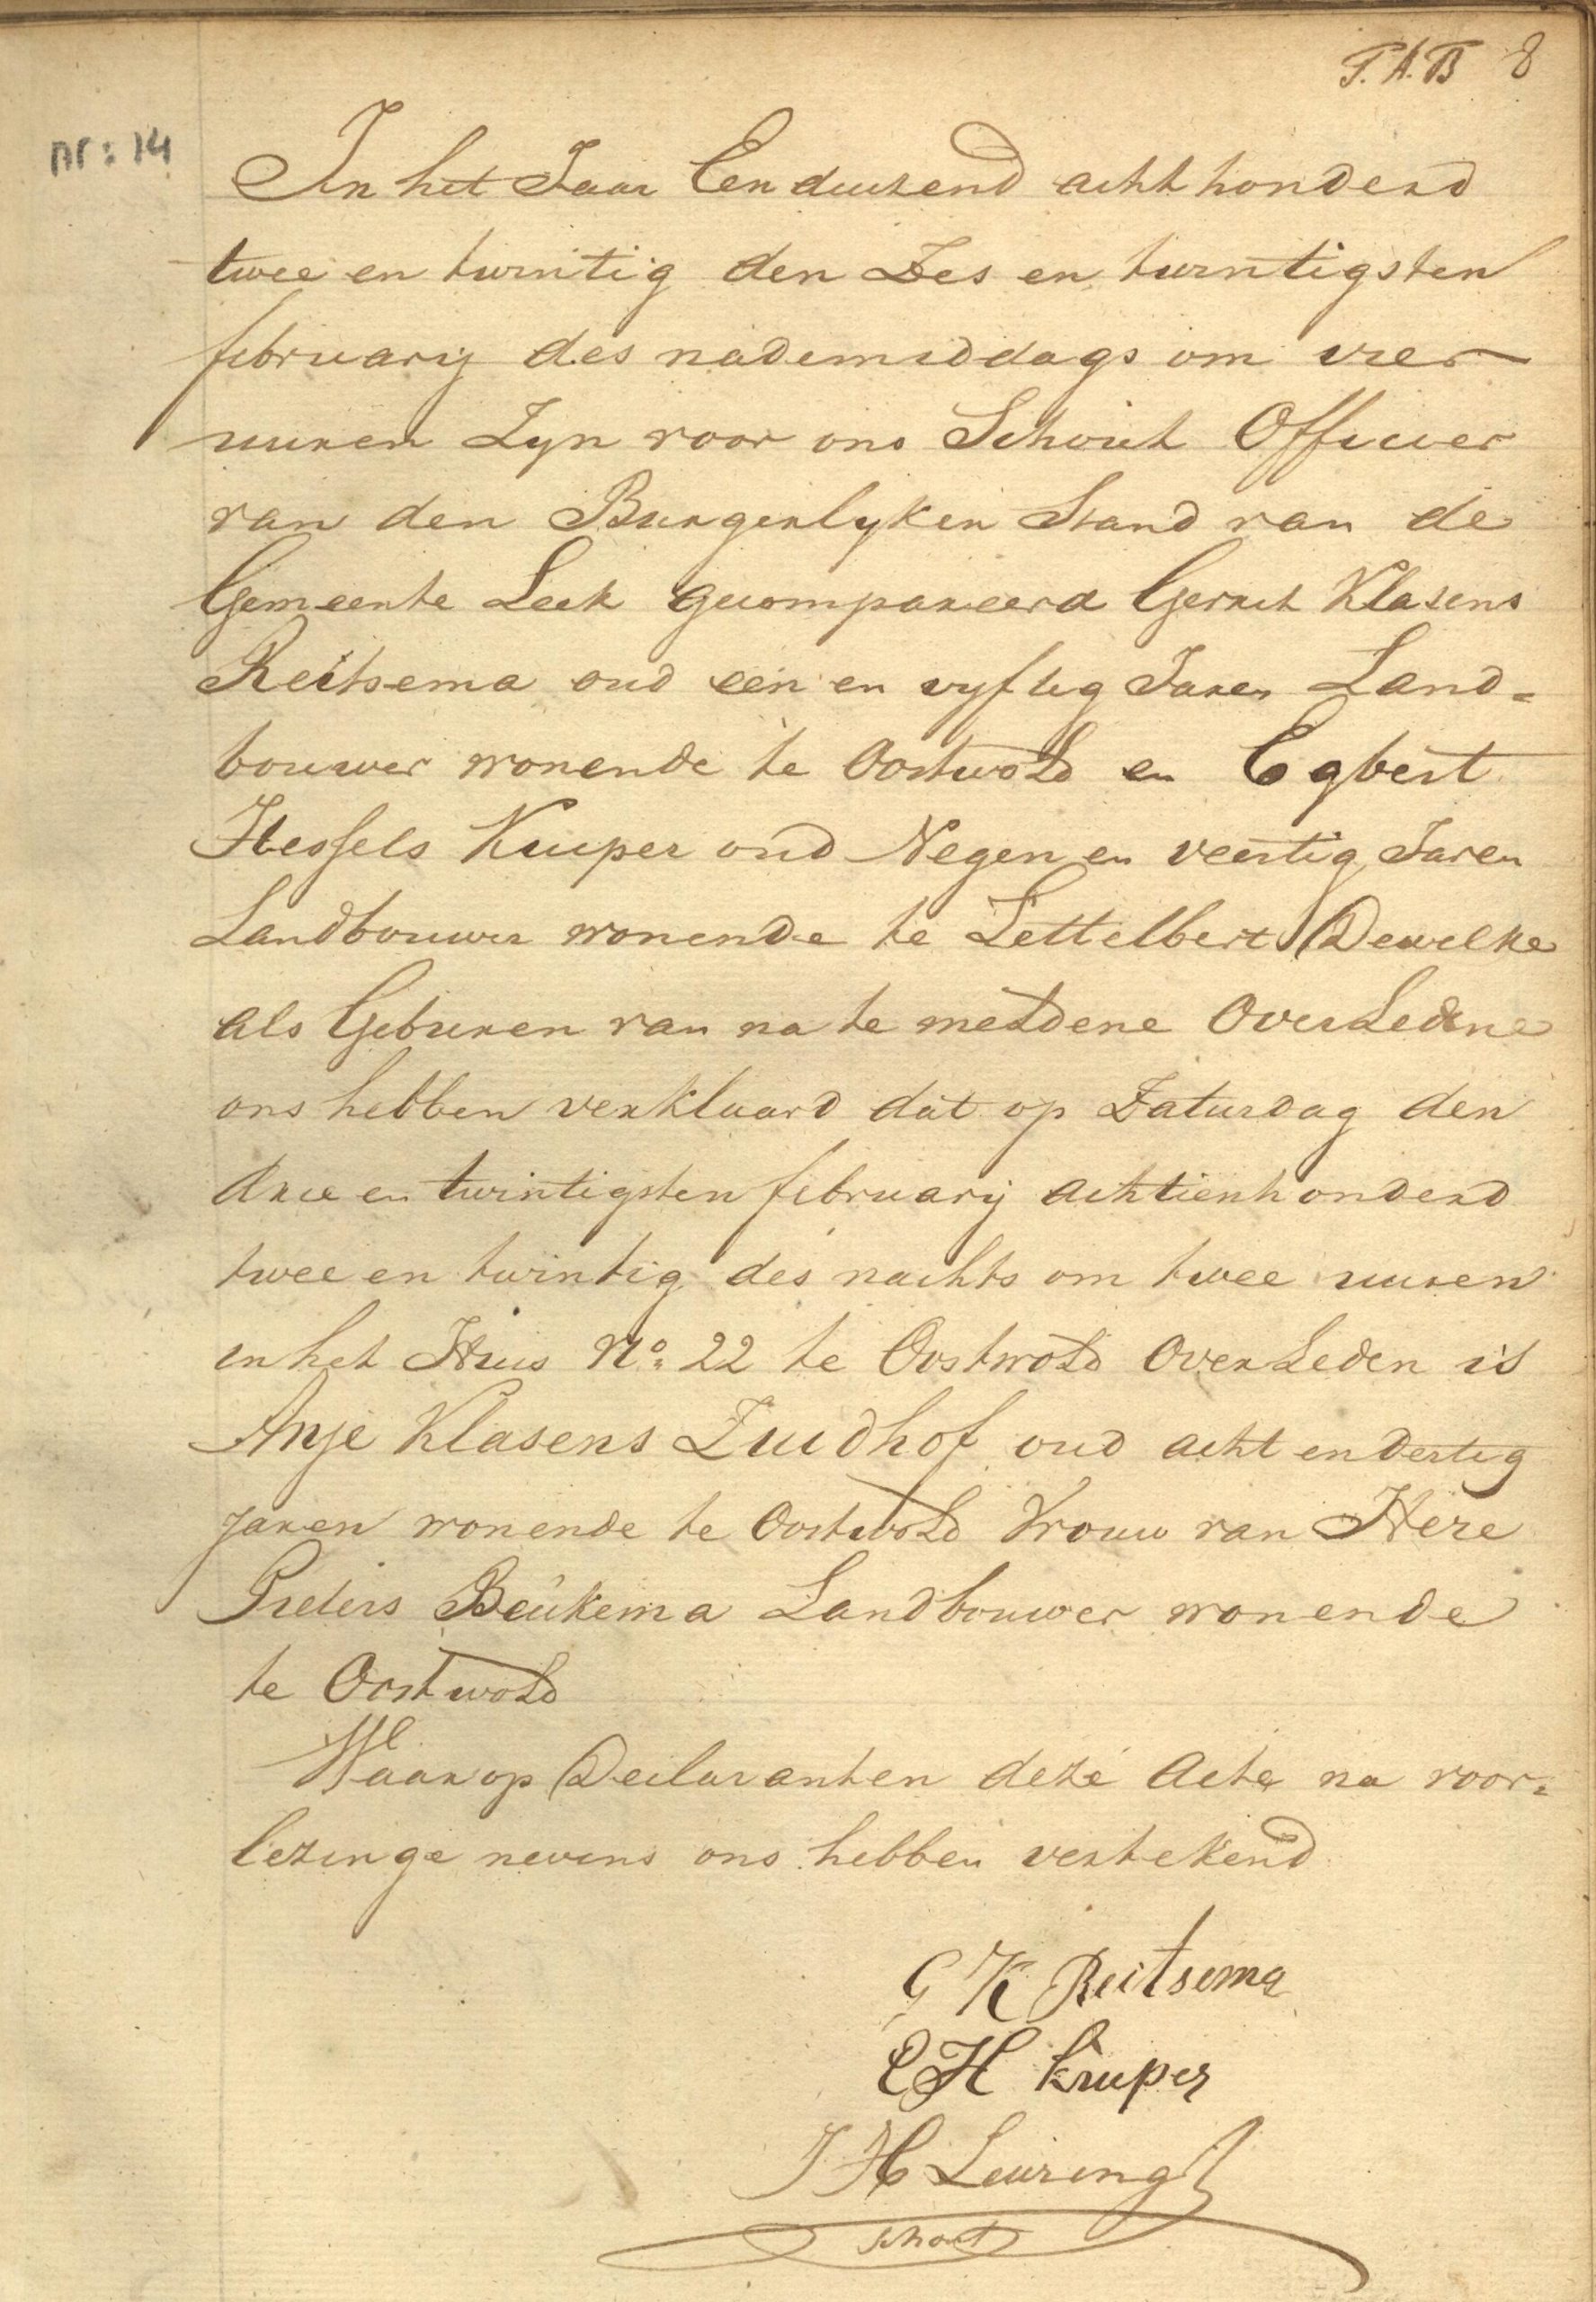 T.A.B 8
nr: 14
In het Jaar Een duizend acht honderd
twee en twintig den Zes en twintigsten
february des nademiddags om vier
uuren Zyn voor ons Schout Officier
van den Burgerlyken Stand van de
Gemeente Leek gecompareerd Gerrit Klasens
Reitsema oud een en vyftig Jaren Land=
bouwer wonende te Oostwold en Egbert
Hessels Kuiper oud Negen en veertig Jaren
Landbouwer wonende te Lettelbert Dewelke
als Geburen van na te meldene OverLedene
ons hebben verklaard dat op Zaturdag den
drie en twintigsten february achtienhonderd
twee en twintig des nachts om twee uuren
in het Huis No 22 te Oostwold OverLeden is
Anje Klasens Zuidhof oud acht en dertig
jaren wonende te Oostwold Vrouw van Here
Pieters Beukema Landbouwer wonende
te Oostwold
Waarop Declaranten deze Acte na voor=
lezinge nevens ons hebben vertekend
G K Reitsema
E H Kuiper
J H Leuring
schout